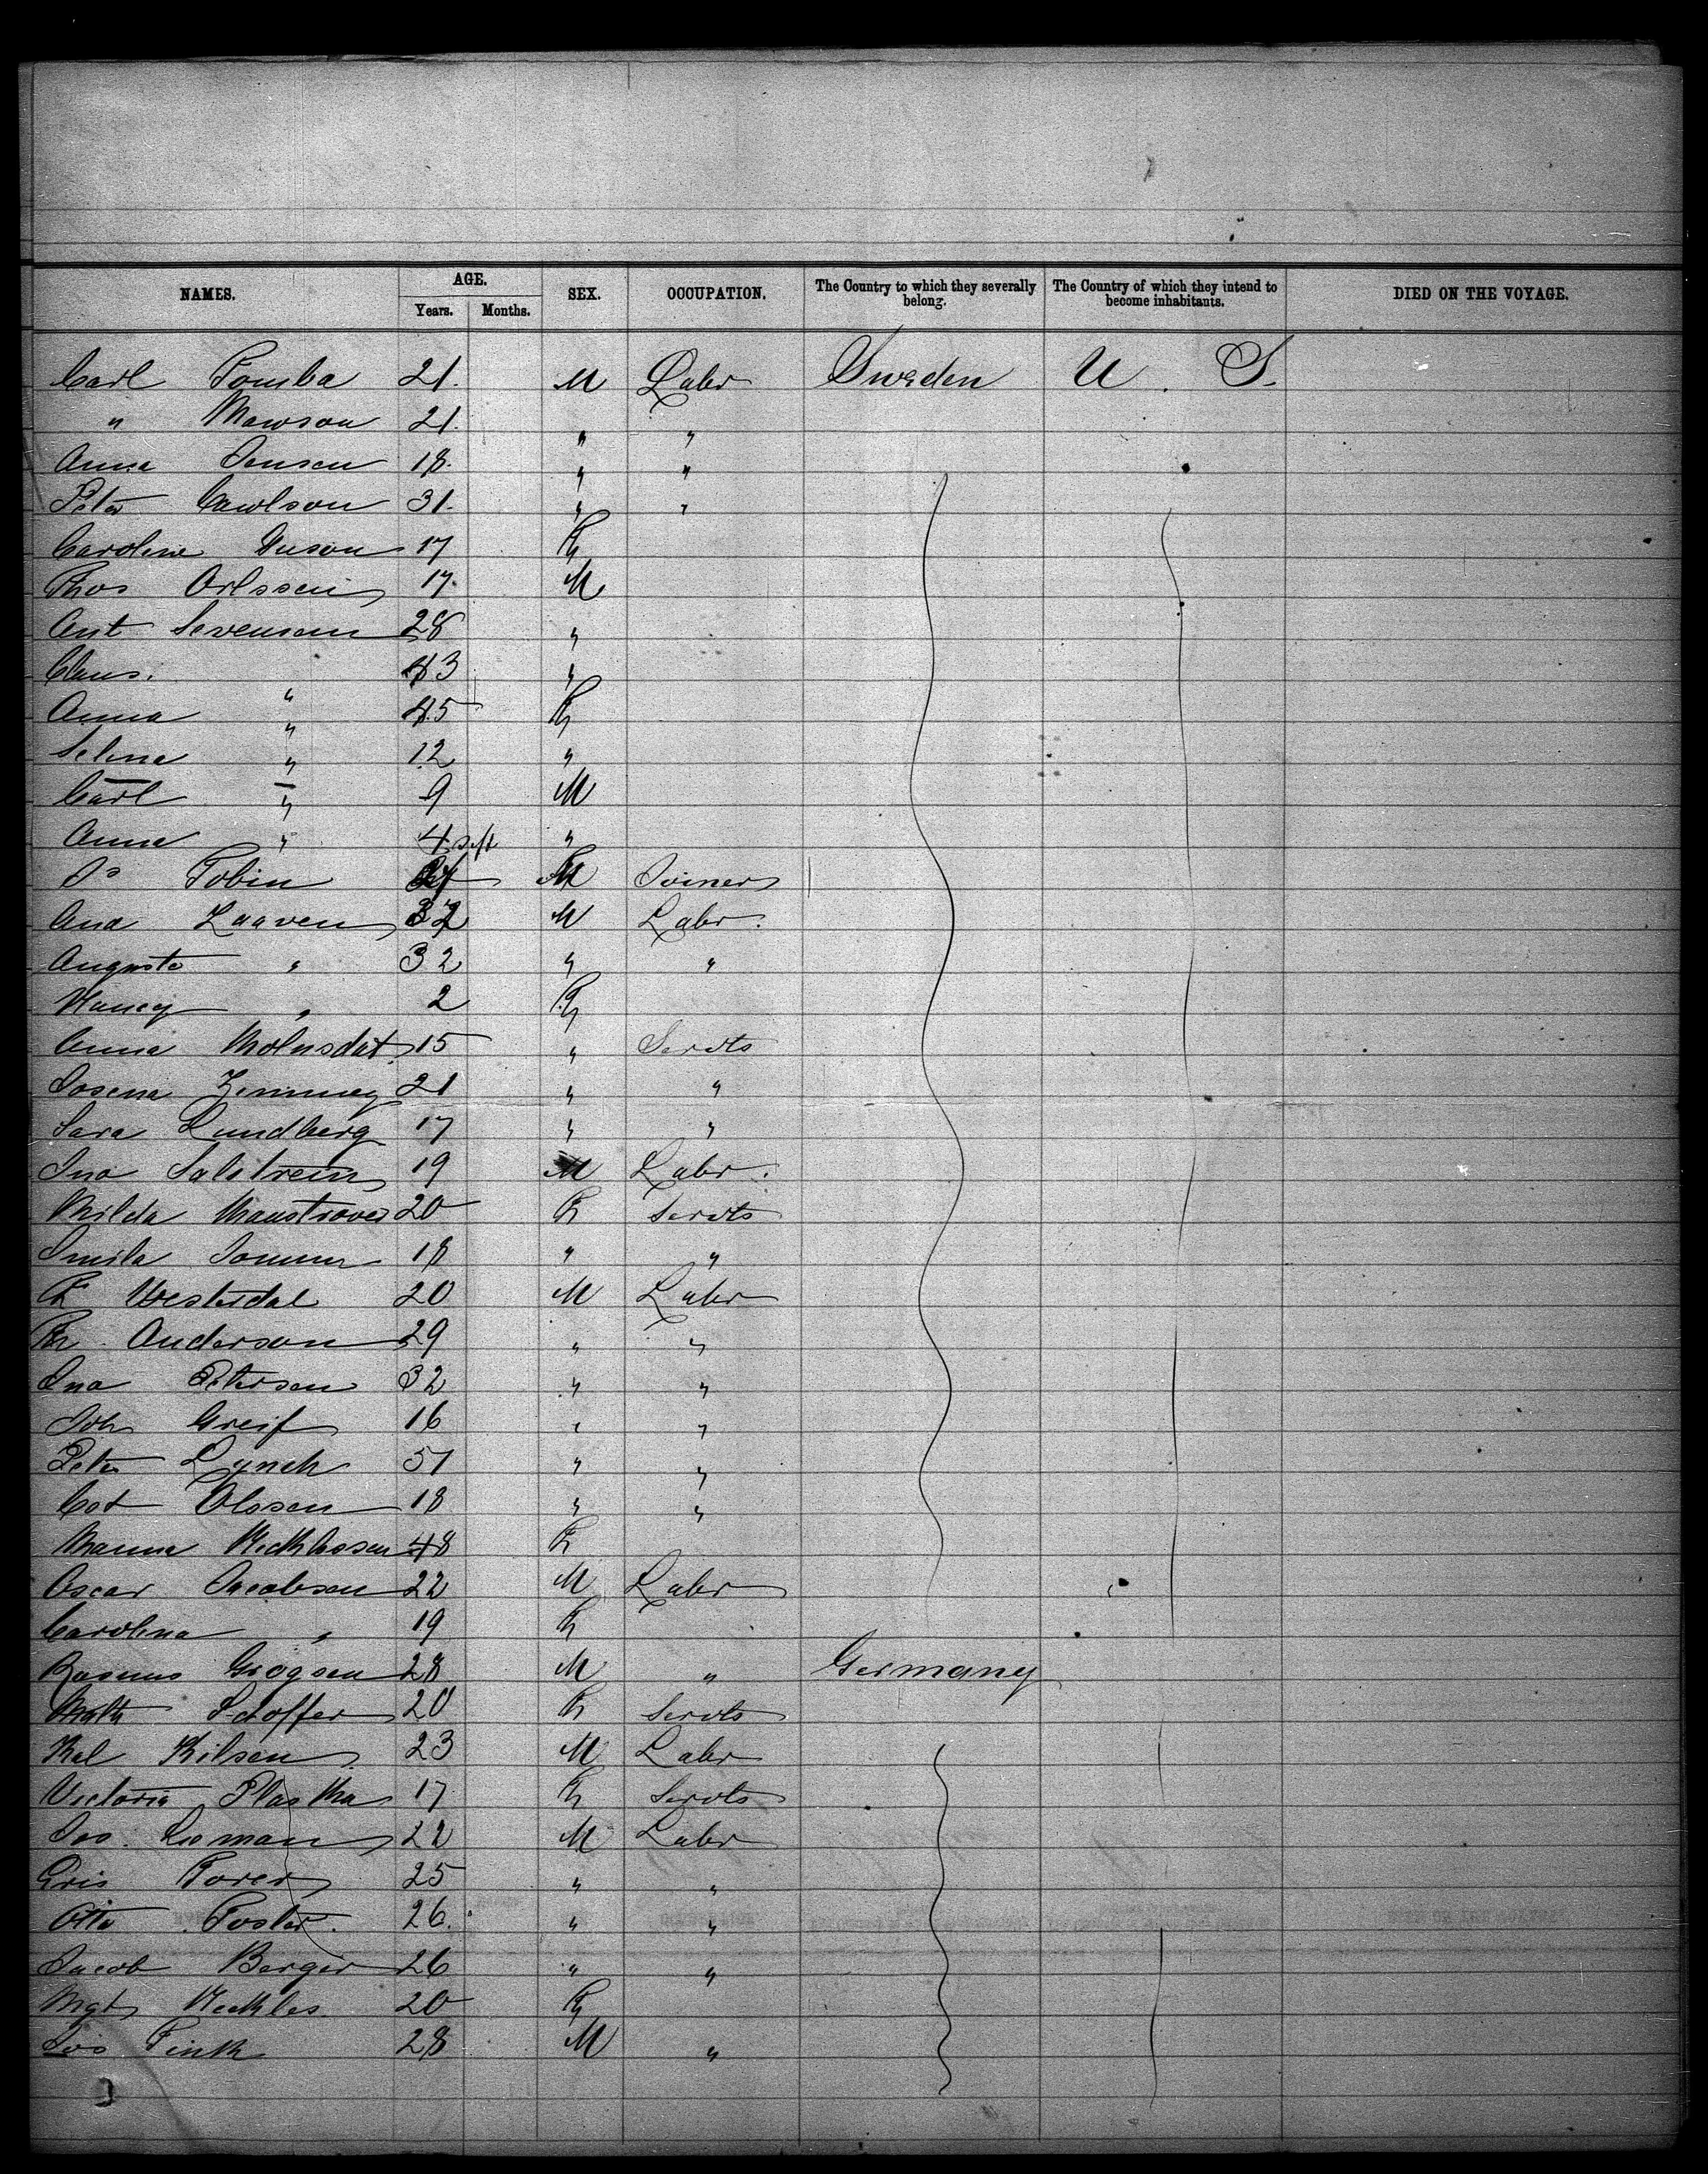 NAMES. AGE. Years. Months. SEX. OCCUPATION. The Country to which they severally belong. The Country of which they intend to become inhabitants. DIED ON THE VOYAGE.
Carl Tomba 21. M Labr Sweden U. S.
" Mawson 21. " "
Anna Jensen 18. " "
Peter Cawlson 31. " "
Caroline 17 F
Thos Orlssein 17. M
Ant Sevensen 28 "
Claus. " 43 "
Anna " 45 F
Selma " 12 "
Carl " 9 M
Anna " 4 "
Jo Tobin M Joiner
And Laaven 32 M Labr.
Augusta " 32 " "
Nancy " 2 F
Anna Molnsdat 15 " Servts
Josena Zemmey 21 " "
Sara Lundberg 17 " "
Jno Salstrem 19 M Labr.
Hilda 20 F Servts
Emila 18 " "
F Westerdal 20 M Labr
Anderson 29 " "
Jno Petersen 32 " "
Joh Greif 16 " "
Peter Lynch 51 " "
Cot Olssen 18 " "
Hanna 48 F
Oscar Jacobsen 22 M Labr
Carolina " 19 F
Rasmus Grogsen 28 M " Germany
Math Schoffer 20 F Servts
Kal Kilsen 23 M Labr
Victoria Plaskha 17 F Servts
Jos. Loman 22 M Labr
Gris Torer 25 " "
Otto Foster. 26. " "
Jacob Berger 26 " "
Mgt Meckles 20 F
Jos Fink 28 M "